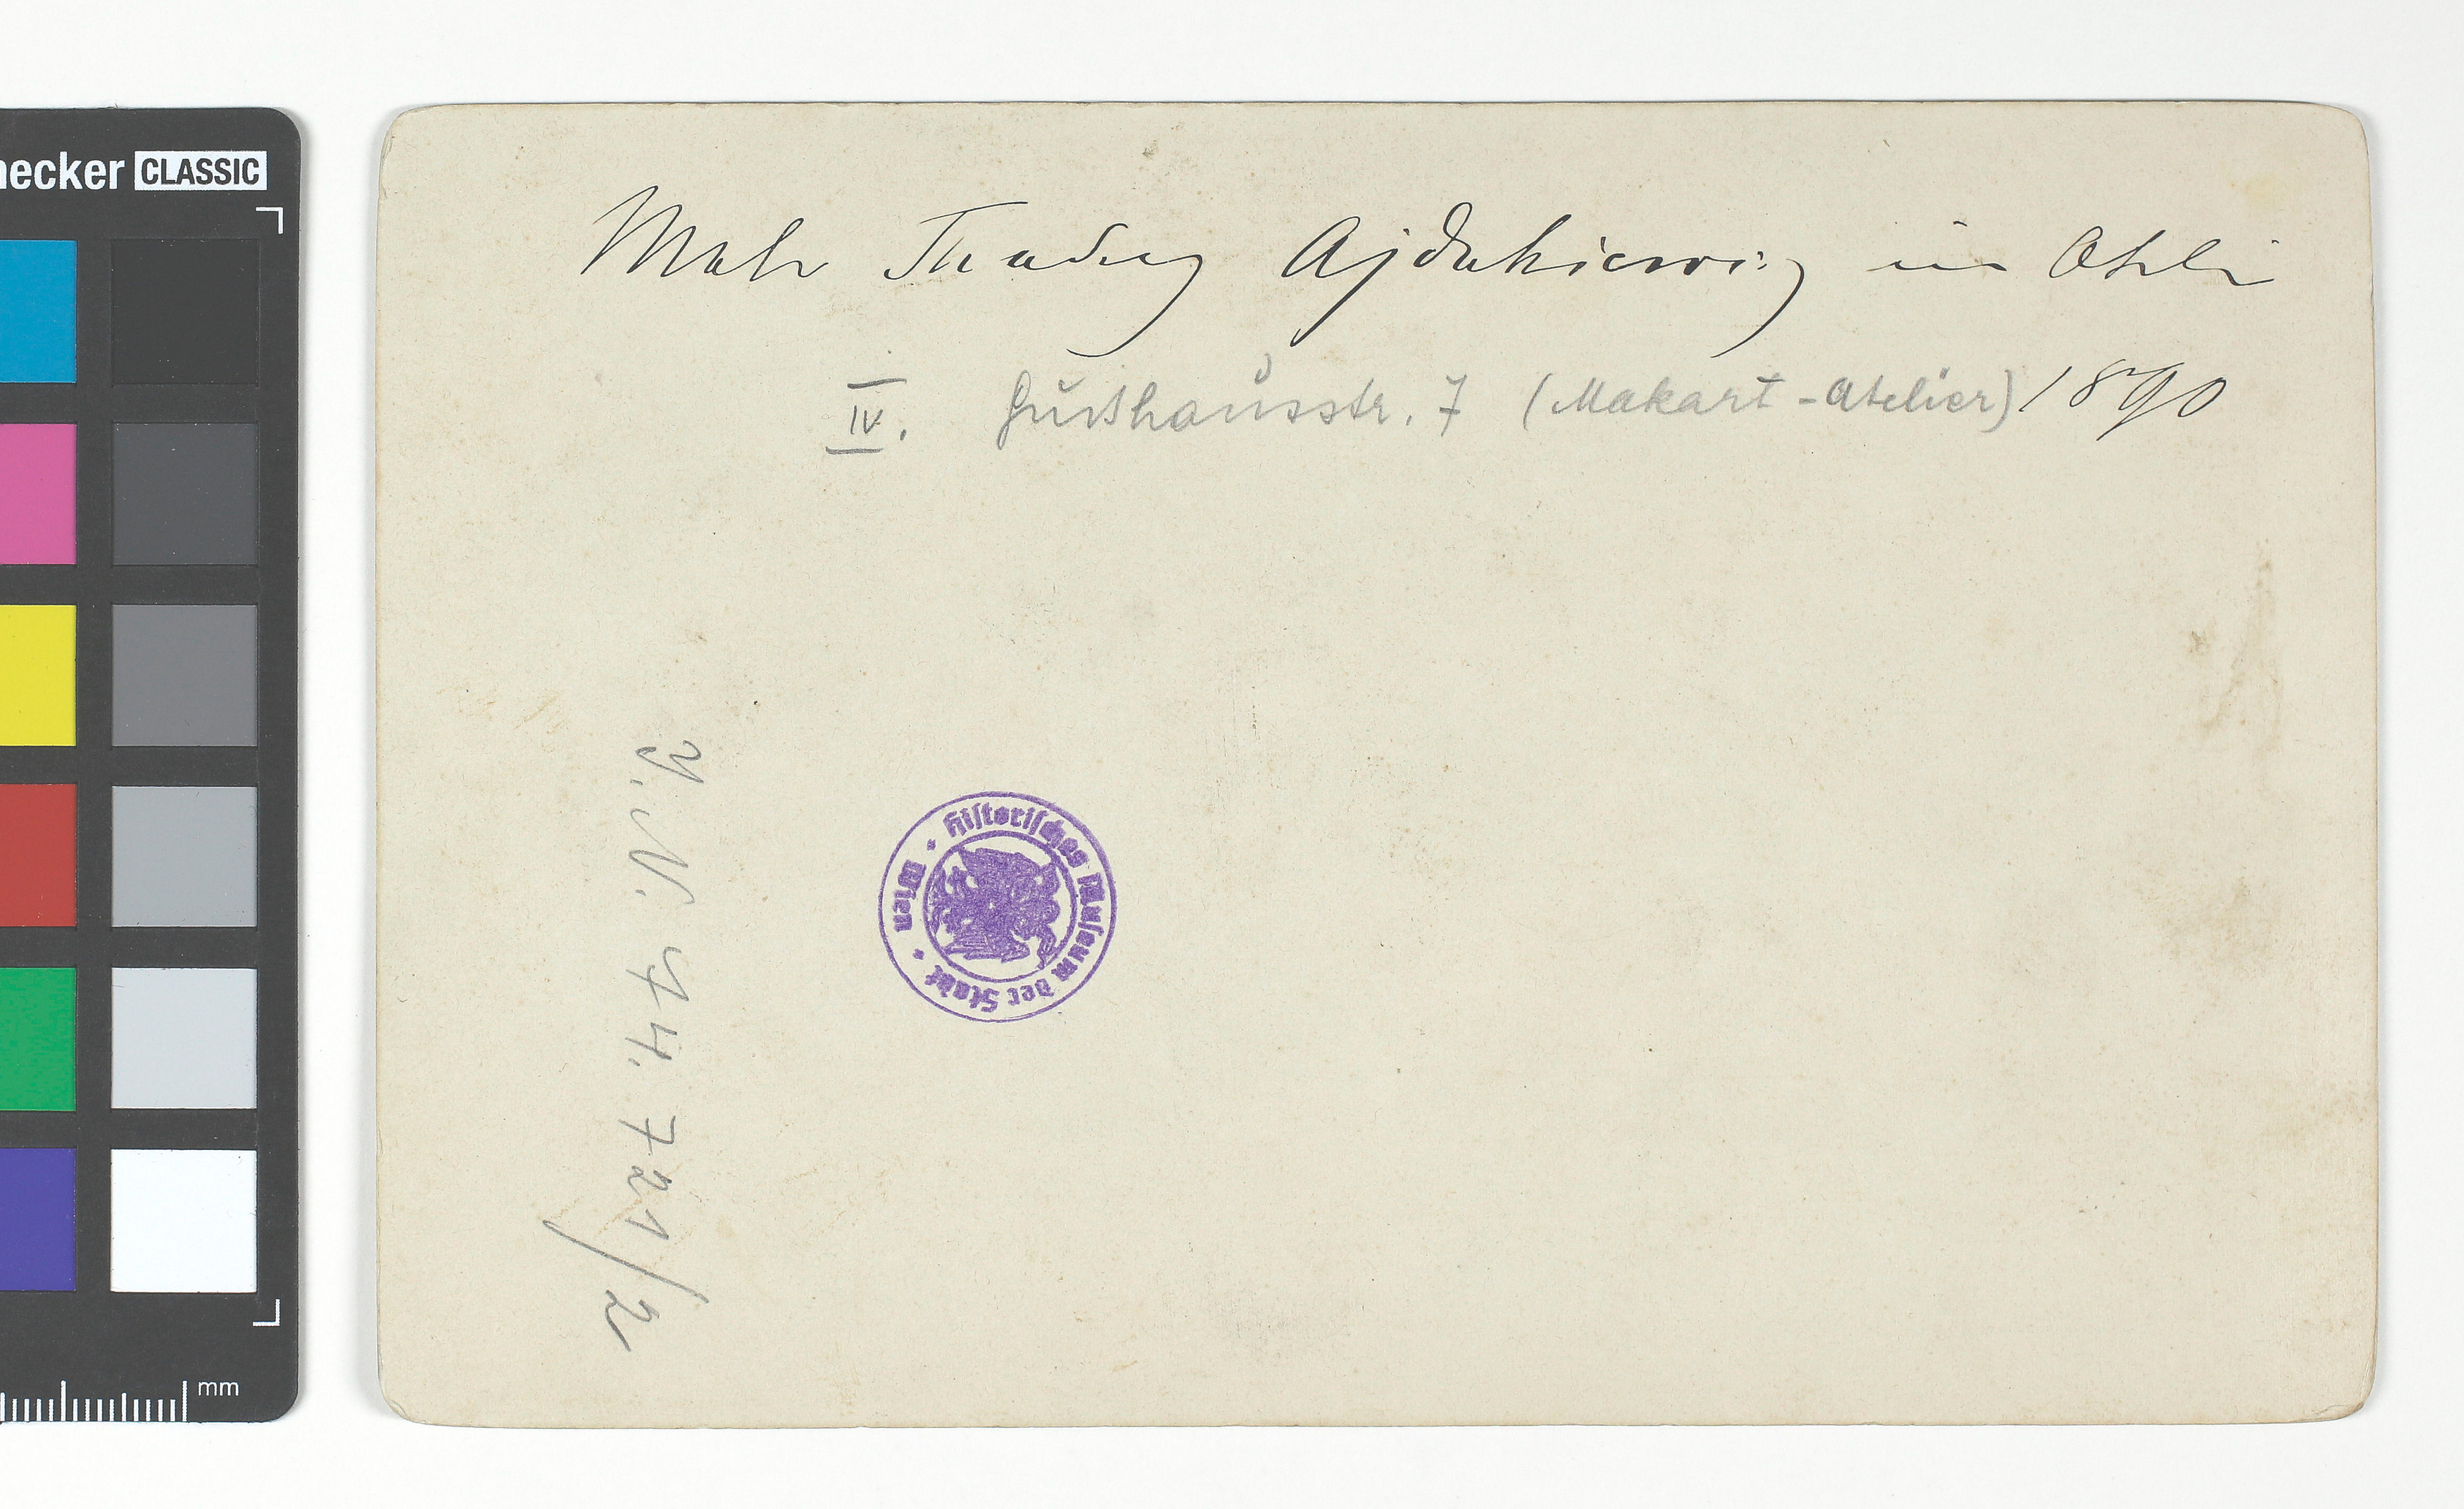 Maler Thadeus Ajdukiewicz im Atelier
IV. Gußhausstr. 7 (Makart-Atelier) 1890
J.N. 74.721/2
Historisches Museum der Stadt Wien
necker CLASSIC
mm